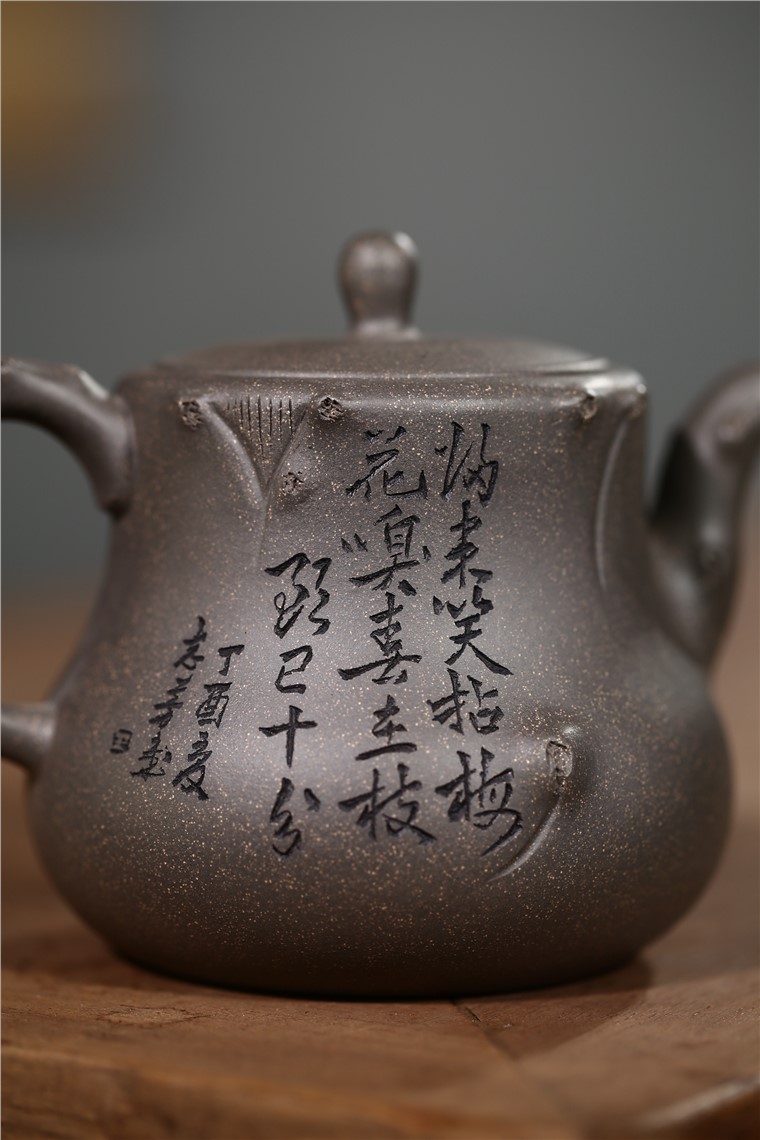 归来笑拈梅
花嗅喜在枝
頭已十分
丁酉夏